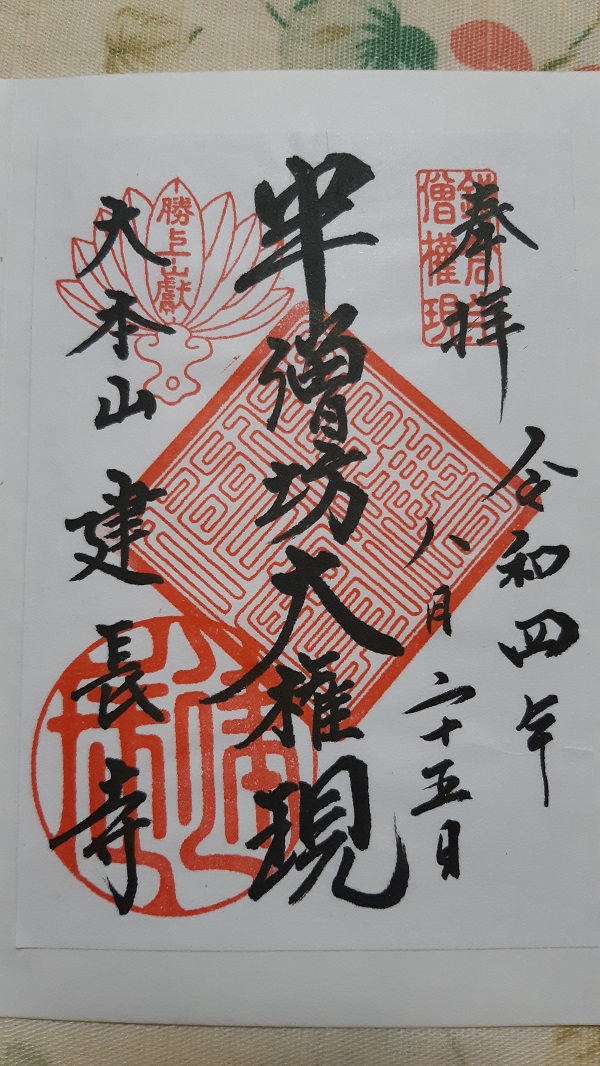 奉拝
令和四年
八月二十五日
半僧坊大権現
大本山建長寺
勝上山献